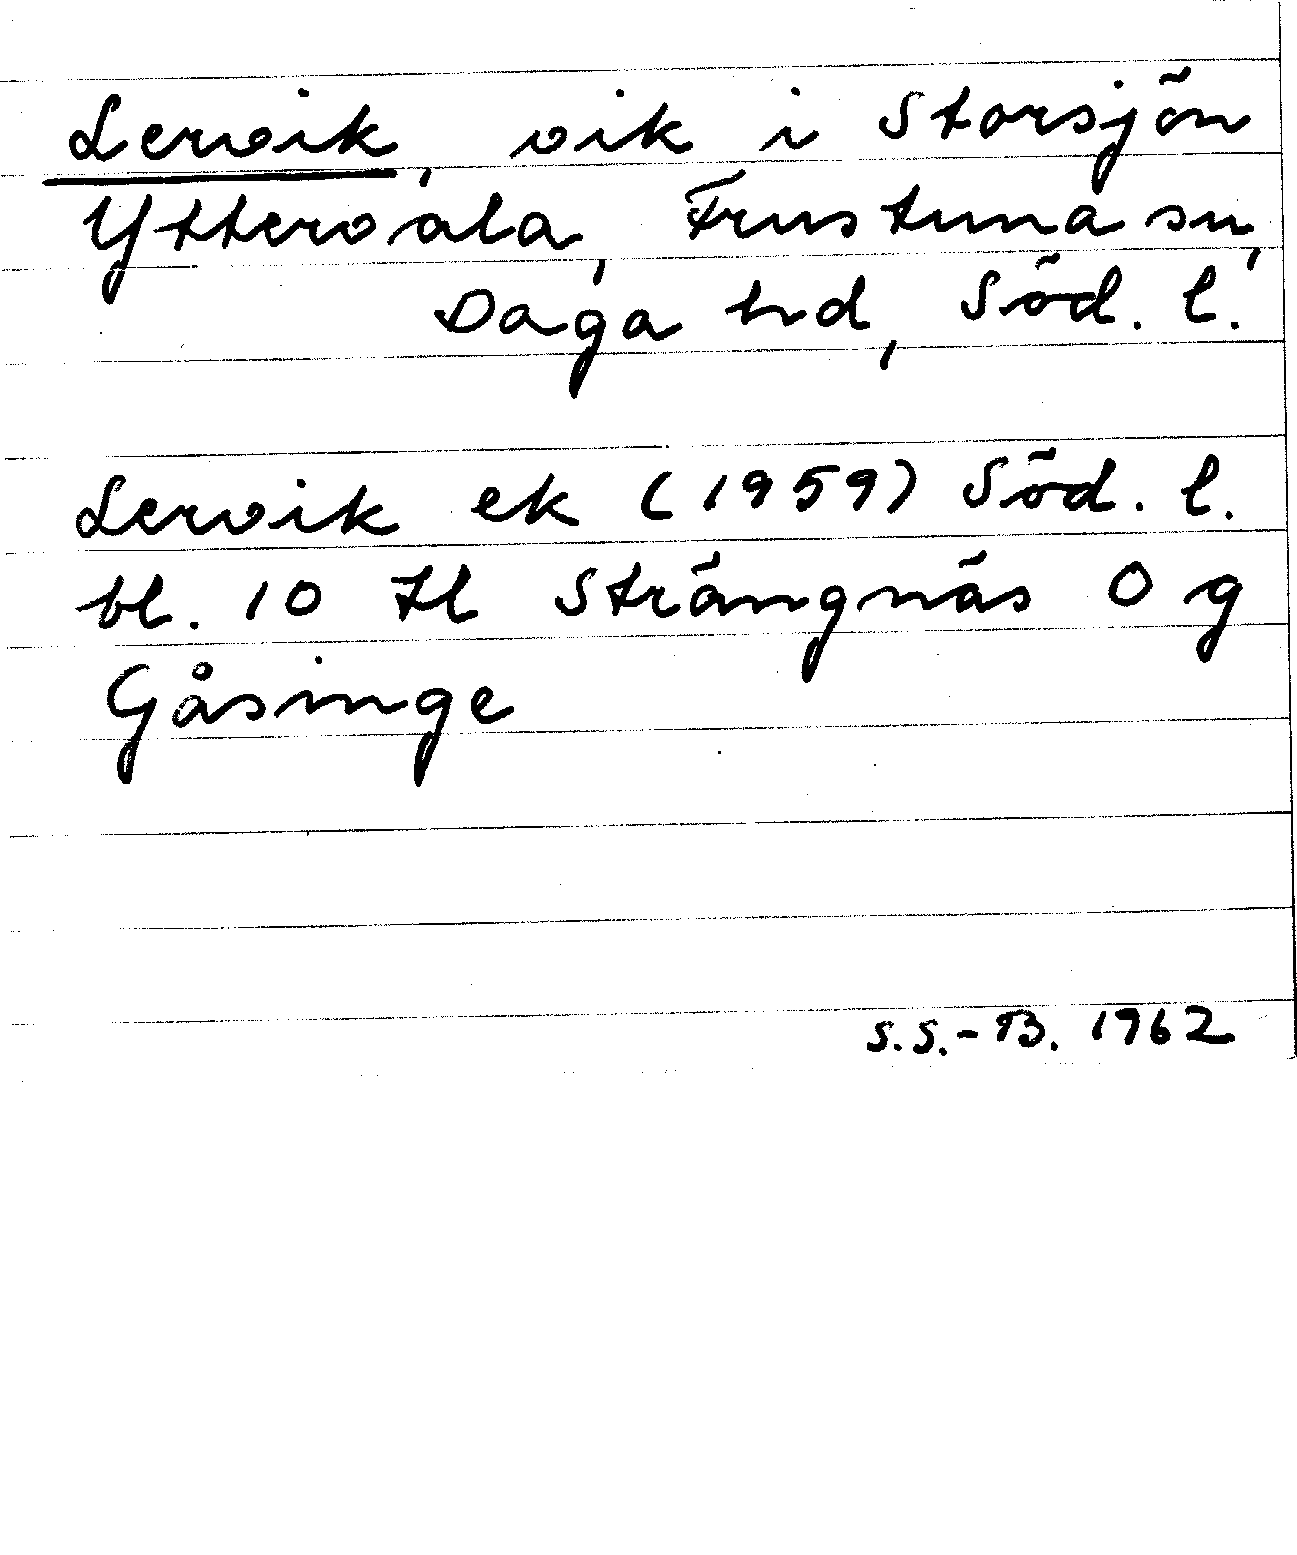 Lervik, vik i Storsjön
Ytterväla, Frustuna sn,
Daga hd, Söd. l.
Lervik ek (1959) Söd. l.
bl. 10 Tl Strängnäs O g
Gåsinge
S.S.-B. 1962